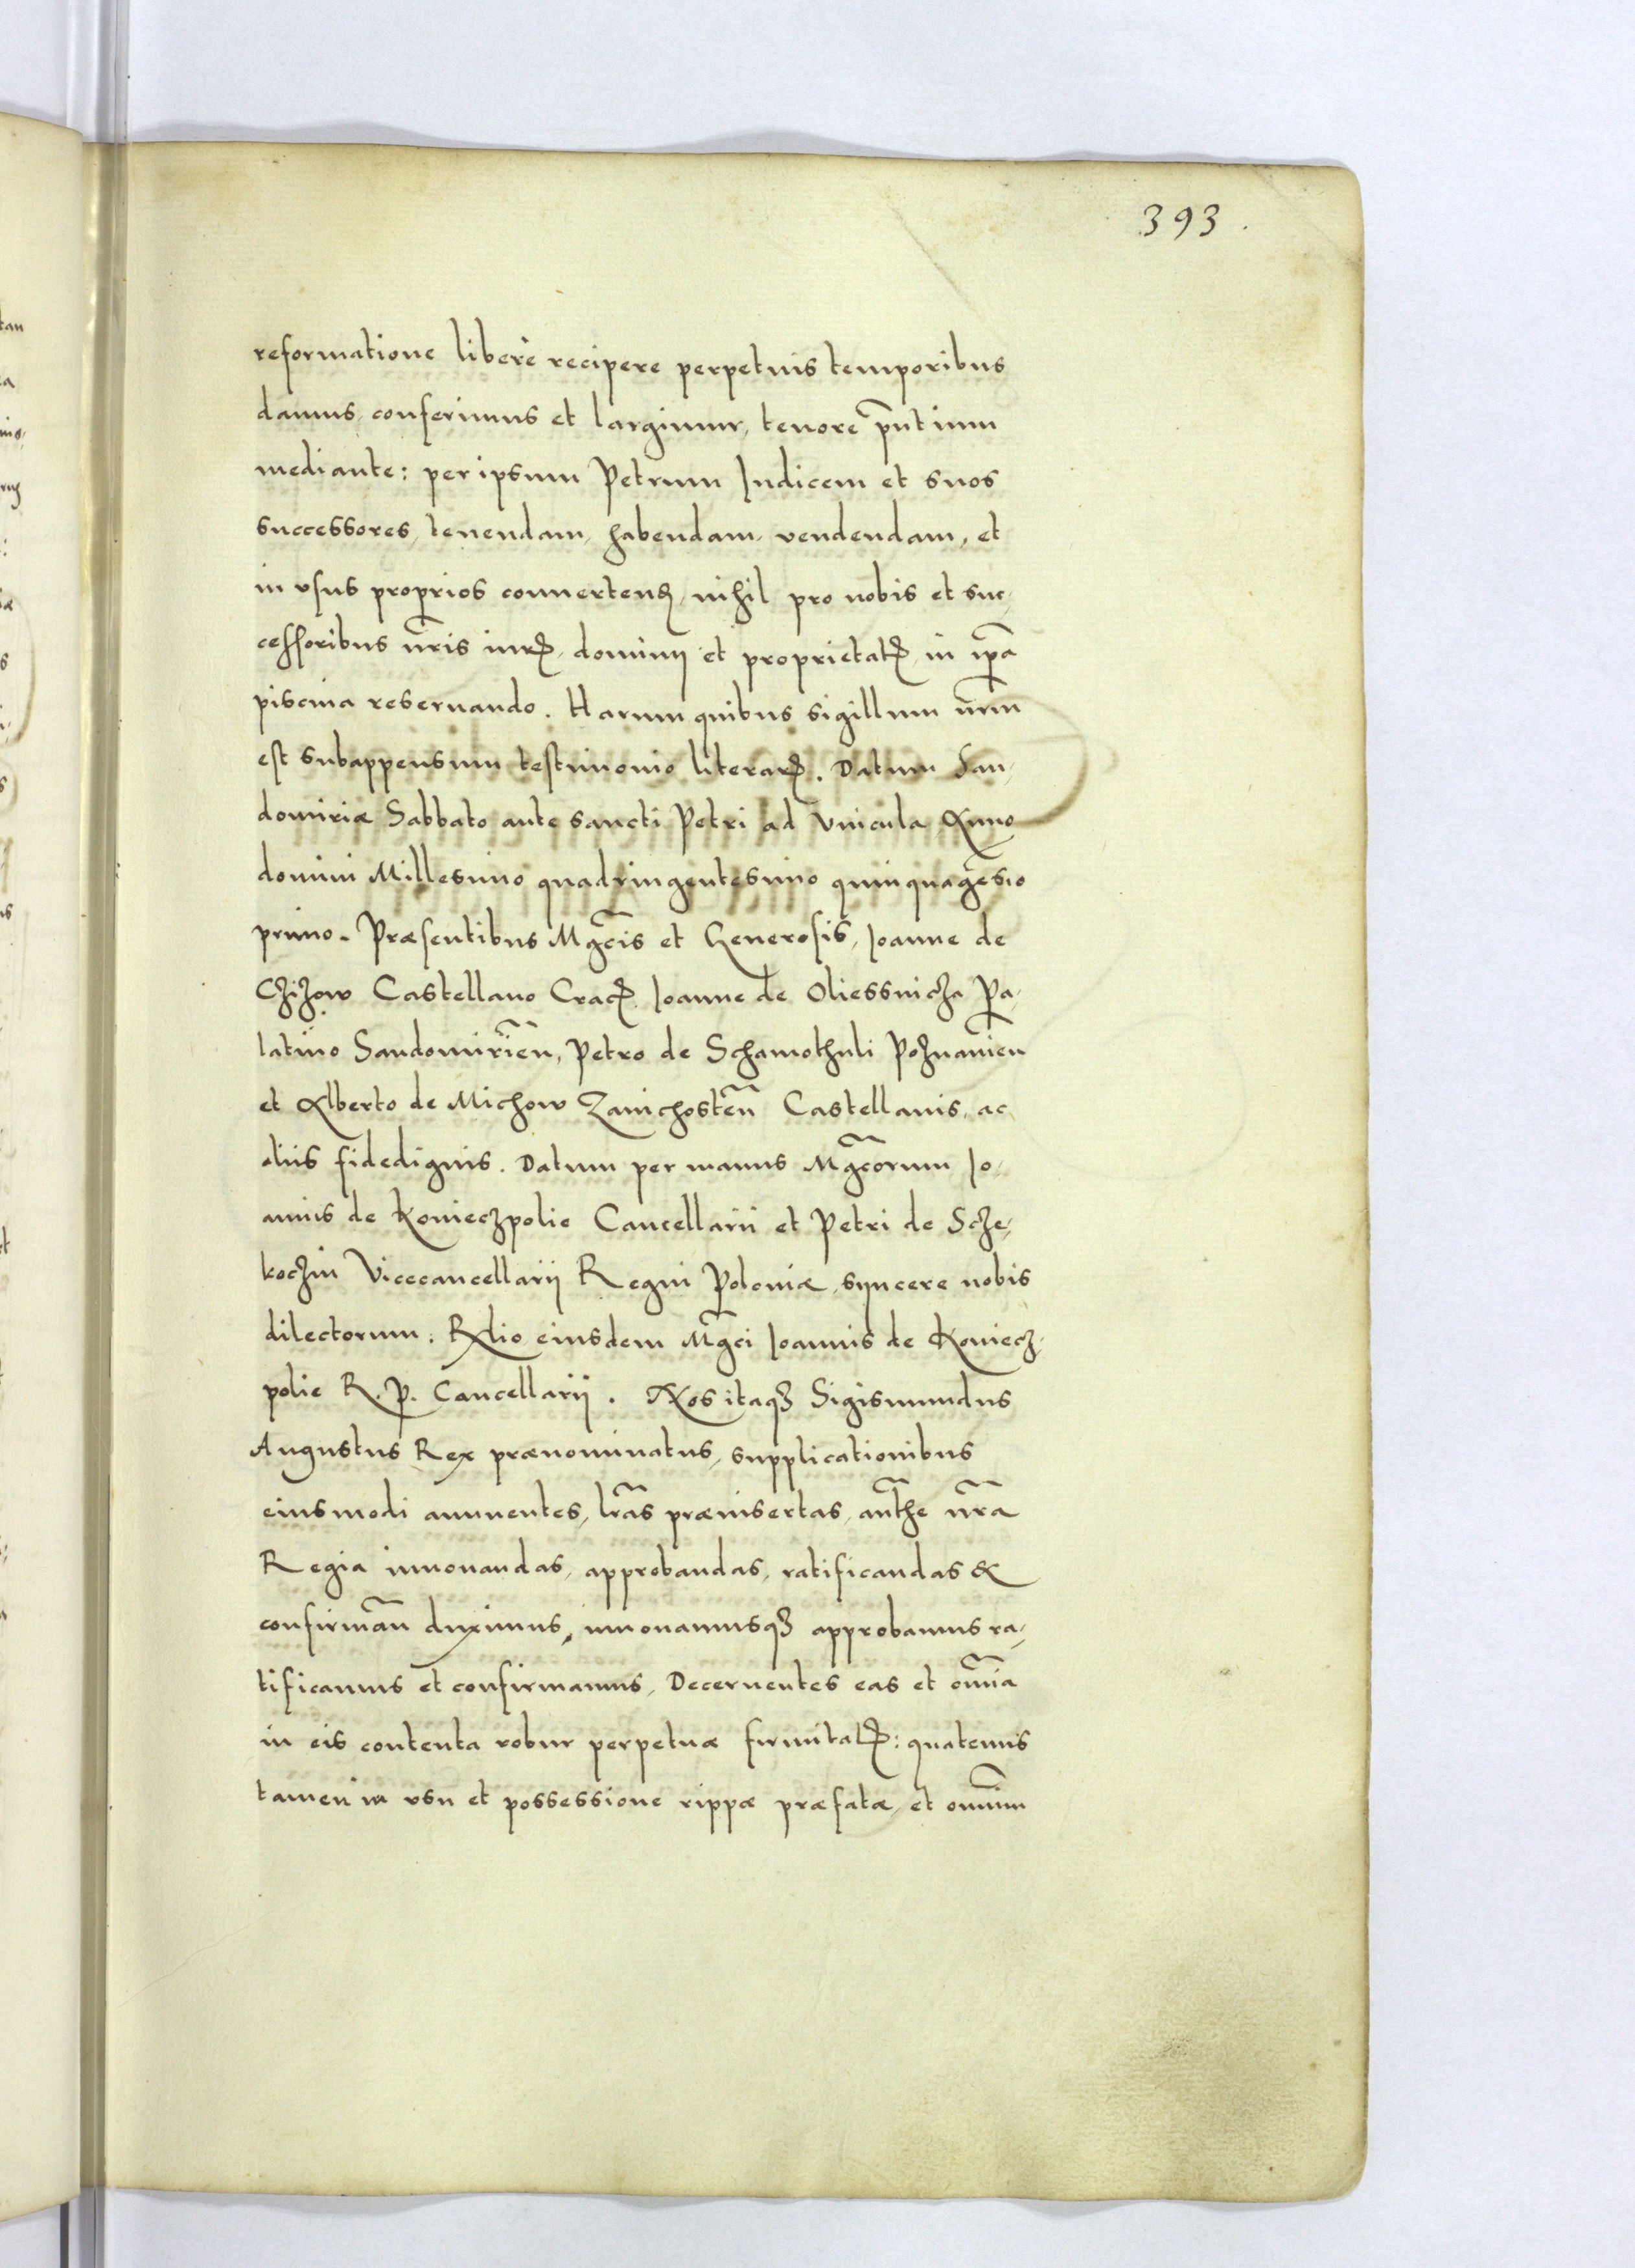 393.
reformatione liberè recipere perpetuis temporibus
damus, conferimus et largimur, tenore pn̄tium
mediante: per ipsum Petrum Iudicem et suos
successores, tenendam, habendam, vendendam, et
in vsus proprios conuertenꝫ, nihil pro nobis et suc-
cessoribus nr̄is iurꝭ, dominij et proprietatꝭ, in ip̄a
piscina reseruando. Harum quibus sigillum nr̄m
est subappensum testimonio literarꝭ. Datum San-
domiriæ Sabbato ante sancti Petri ad Vincula Anno
domini Millesimo quadringentesimo quinquagēsio
primo. Præsentibus Mgc̄is et Generosis, Ioanne de
Czizow Castellano Cracꝭ. Ioanne de Oliessnicza Pa-
latino Sandomirien̄, Petro de Schamothuli Poznanien̄
et Alberto de Michow Zawichosten̄ Castellanis, ac
aliis fidedignis. Datum per manus Mgc̄orum Io-
annis de Konieczpolie Cancellarii et Petri de Scze-
koczin Vicecancellarij Regni Poloniæ, syncere nobis
dilectorum. Rel̄io eiusdem Mgc̄i Ioannis de Koniecz-
polie R. P. Cancellarij. Nos itaqꝫ Sigismundus
Augustus Rex prænominatus, supplicationibus
eiusmodi annuentes, lr̄as præinsertas, aut̄he nr̄a
Regia innouandas, approbandas, ratificandas &
confirman̄ duximus, innouamusqꝫ approbamus ra-
tificamus et confirmamus, Decernentes eas et om̄ia
in eis contenta robur perpetuæ firmitatꝭ: quatenus
tamen in vsu et possessione rippæ præfatæ, et omnium̄